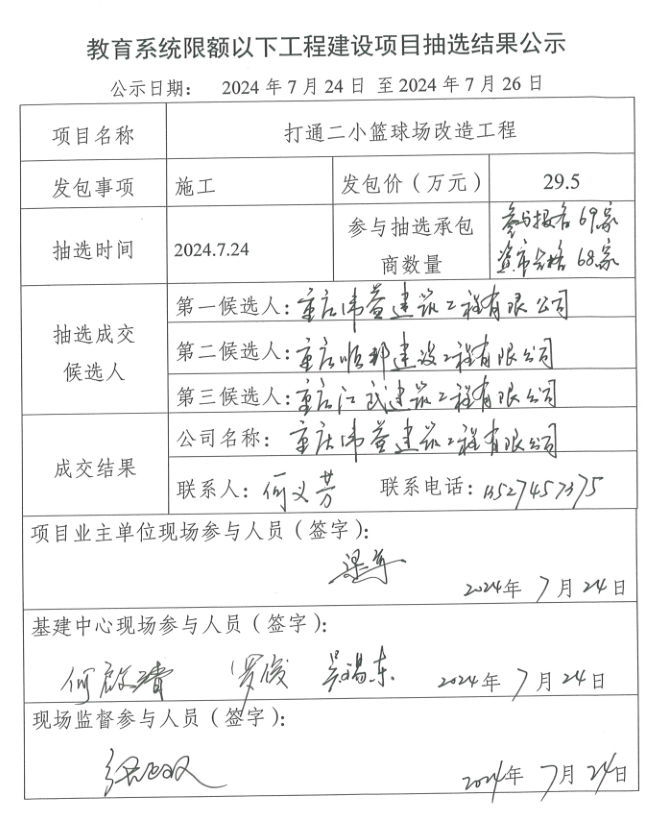 教育系统限额以下工程建设项目抽选结果公示
公示日期： 2024 年 7 月 24 日 至 2024 年 7 月 26 日
项目名称 打通二小篮球场改造工程
发包事项 施工 发包价（万元） 29.5
抽选时间 2024.7.24 参与抽选承包商数量 参与报名 69家
资审合格 68家
抽选成交候选人 第一候选人：重庆伟益建筑工程有限公司
第二候选人：重庆顺邦建设工程有限公司
第三候选人：重庆江武建筑工程有限公司
成交结果 公司名称： 重庆伟益建筑工程有限公司
联系人：何义芳 联系电话：13527457375
项目业主单位现场参与人员（签字）：
2024年 7月 24日
基建中心现场参与人员（签字）：
罗俊 2024年 7月 24日
现场监督参与人员（签字）：
2024年 7月 24日